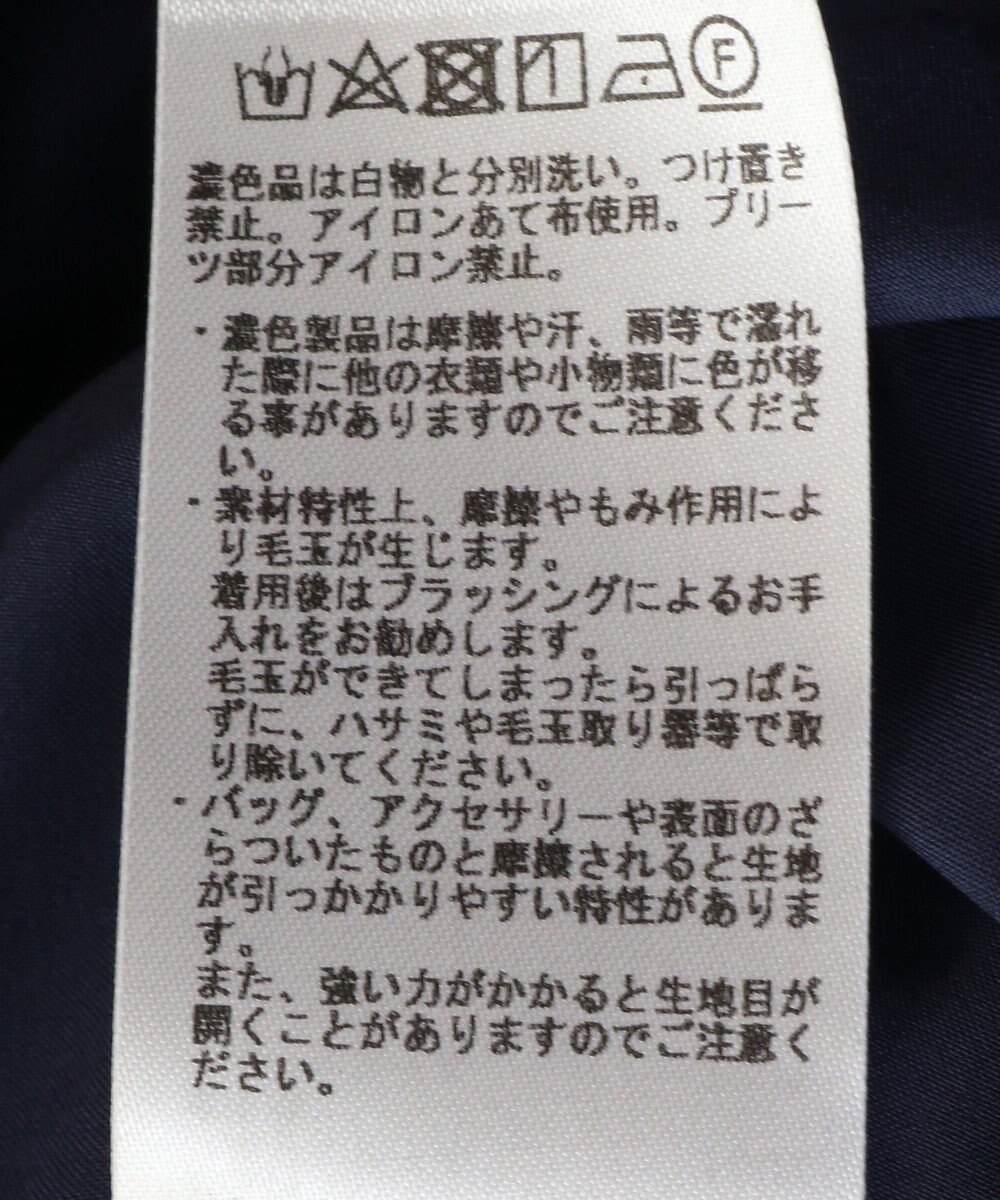 F
濃色品は白物と分別洗い。つけ置き
禁止。アイロンあて布使用。プリー
ツ部分アイロン禁止。
・濃色製品は摩擦や汗、雨等で濡れ
た際に他の衣類や小物類に色が移
る事がありますのでご注意くださ
い。
・素材特性上、摩擦やもみ作用によ
り毛玉が生じます。
着用後はブラッシングによるお手
入れをお勧めします。
毛玉ができてしまったら引っぱら
ずに、ハサミや毛玉取り器等で取
り除いてください。
・バッグ、アクセサリーや表面のざ
らついたものと摩擦されると生地
が引っかかりやすい特性がありま
す。
また、強い力がかかると生地目が
開くことがありますのでご注意く
ださい。